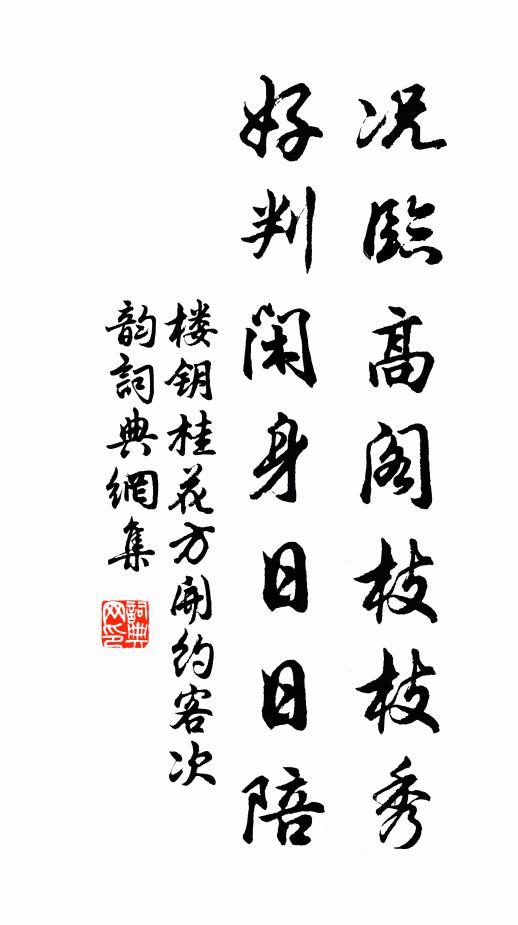 况臨高阁枝枝秀
好判閑身日日陪
楼钥桂花方開约客次
韵詞典網集
詞典网印